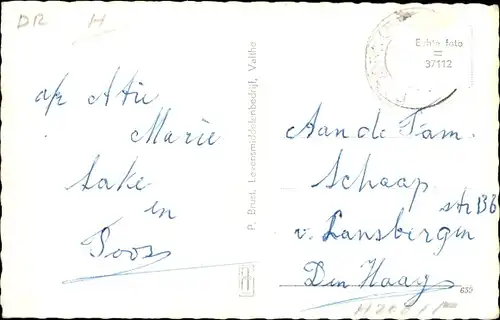 DR H
afz Atie
Marie
Sake
en
Toos
P. Bruel, Levensmiddelenbedrijf, Valthe
Echte foto
=
37112
Aan de Fam.
Schaap
v. Lansbergen
str 136
Den Haag
653